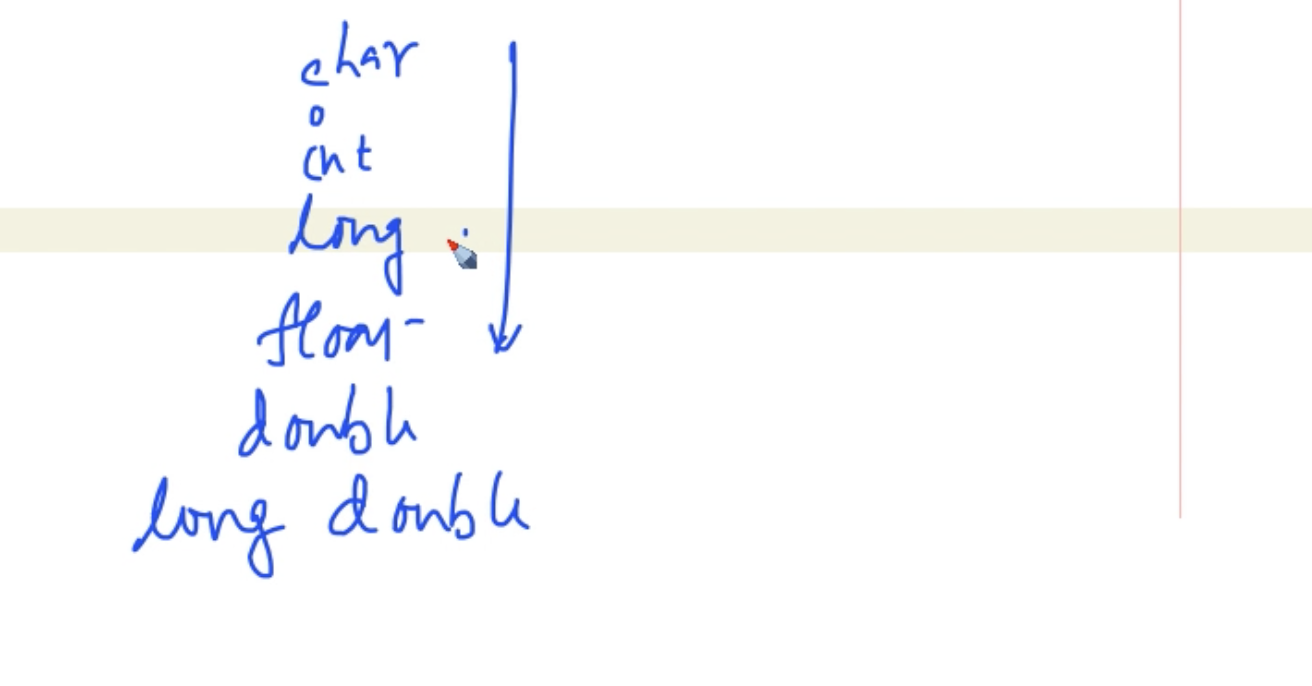 char
int
long
float
double
long double